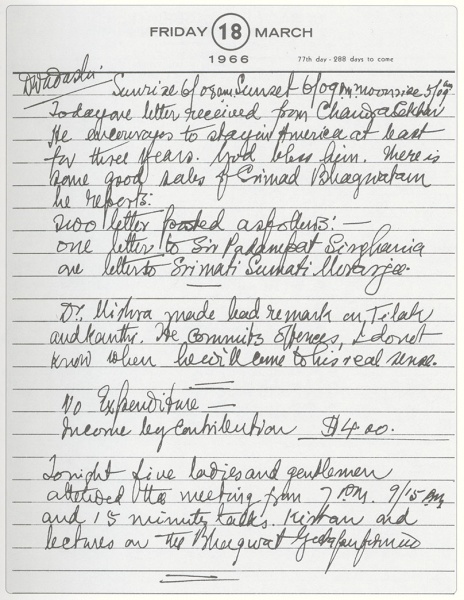 FRIDAY 18 MARCH
1966
77th day - 288 days to come
Dwadashi
Sunrise 6/08 am Sunset 6/09 P.M. moonrise 5/09 am
Today one letter received from Chandrasekhar
He encourages to stay in America at least
for three years. God bless him. There is
some good sales of Srimad Bhagwatam
he reports:
Two letter posted as follows: —
one letter to Sir Padampat Singhania
one letter to Srimati Sumati Morarjee.
Dr. Mishra made bad remark on Tilak
and Kanthi. He commits offences, I do not
know when he will come to his real sense.
No Expenditure —
Income by Contribution $4.00.
Tonight five ladies and gentlemen
attended the meeting from 7 P.M. 9/15 P.M.
and 15 minutes talks. Kirtan and
lectures on the Bhagwat Geeta performed